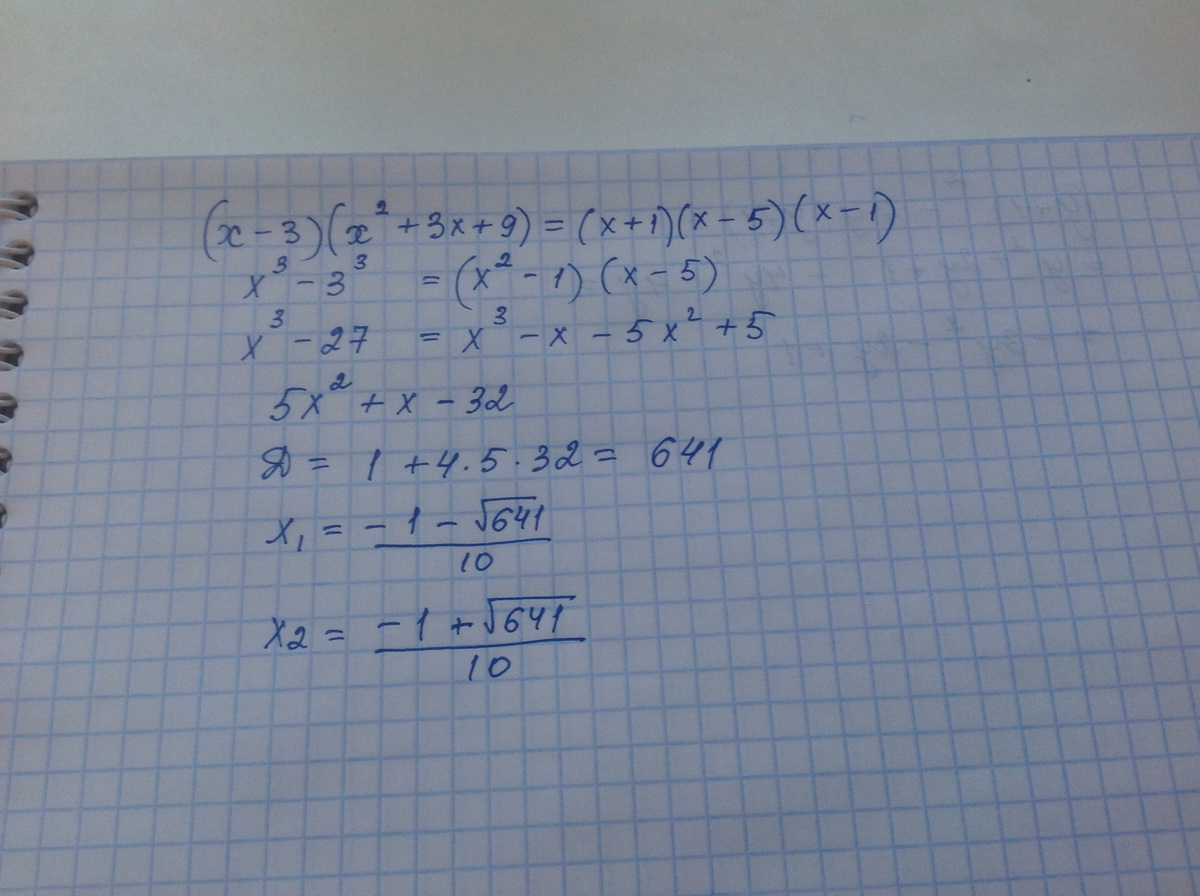 (x - 3)(x² + 3x + 9) = (x + 1)(x - 5)(x - 1)
x³ - 3³ = (x² - 1)(x - 5)
x³ - 27 = x³ - x - 5x² + 5
5x² + x - 32
Д = 1 + 4 · 5 · 32 = 641
x₁ = (-1 - √641)/10
x₂ = (-1 + √641)/10